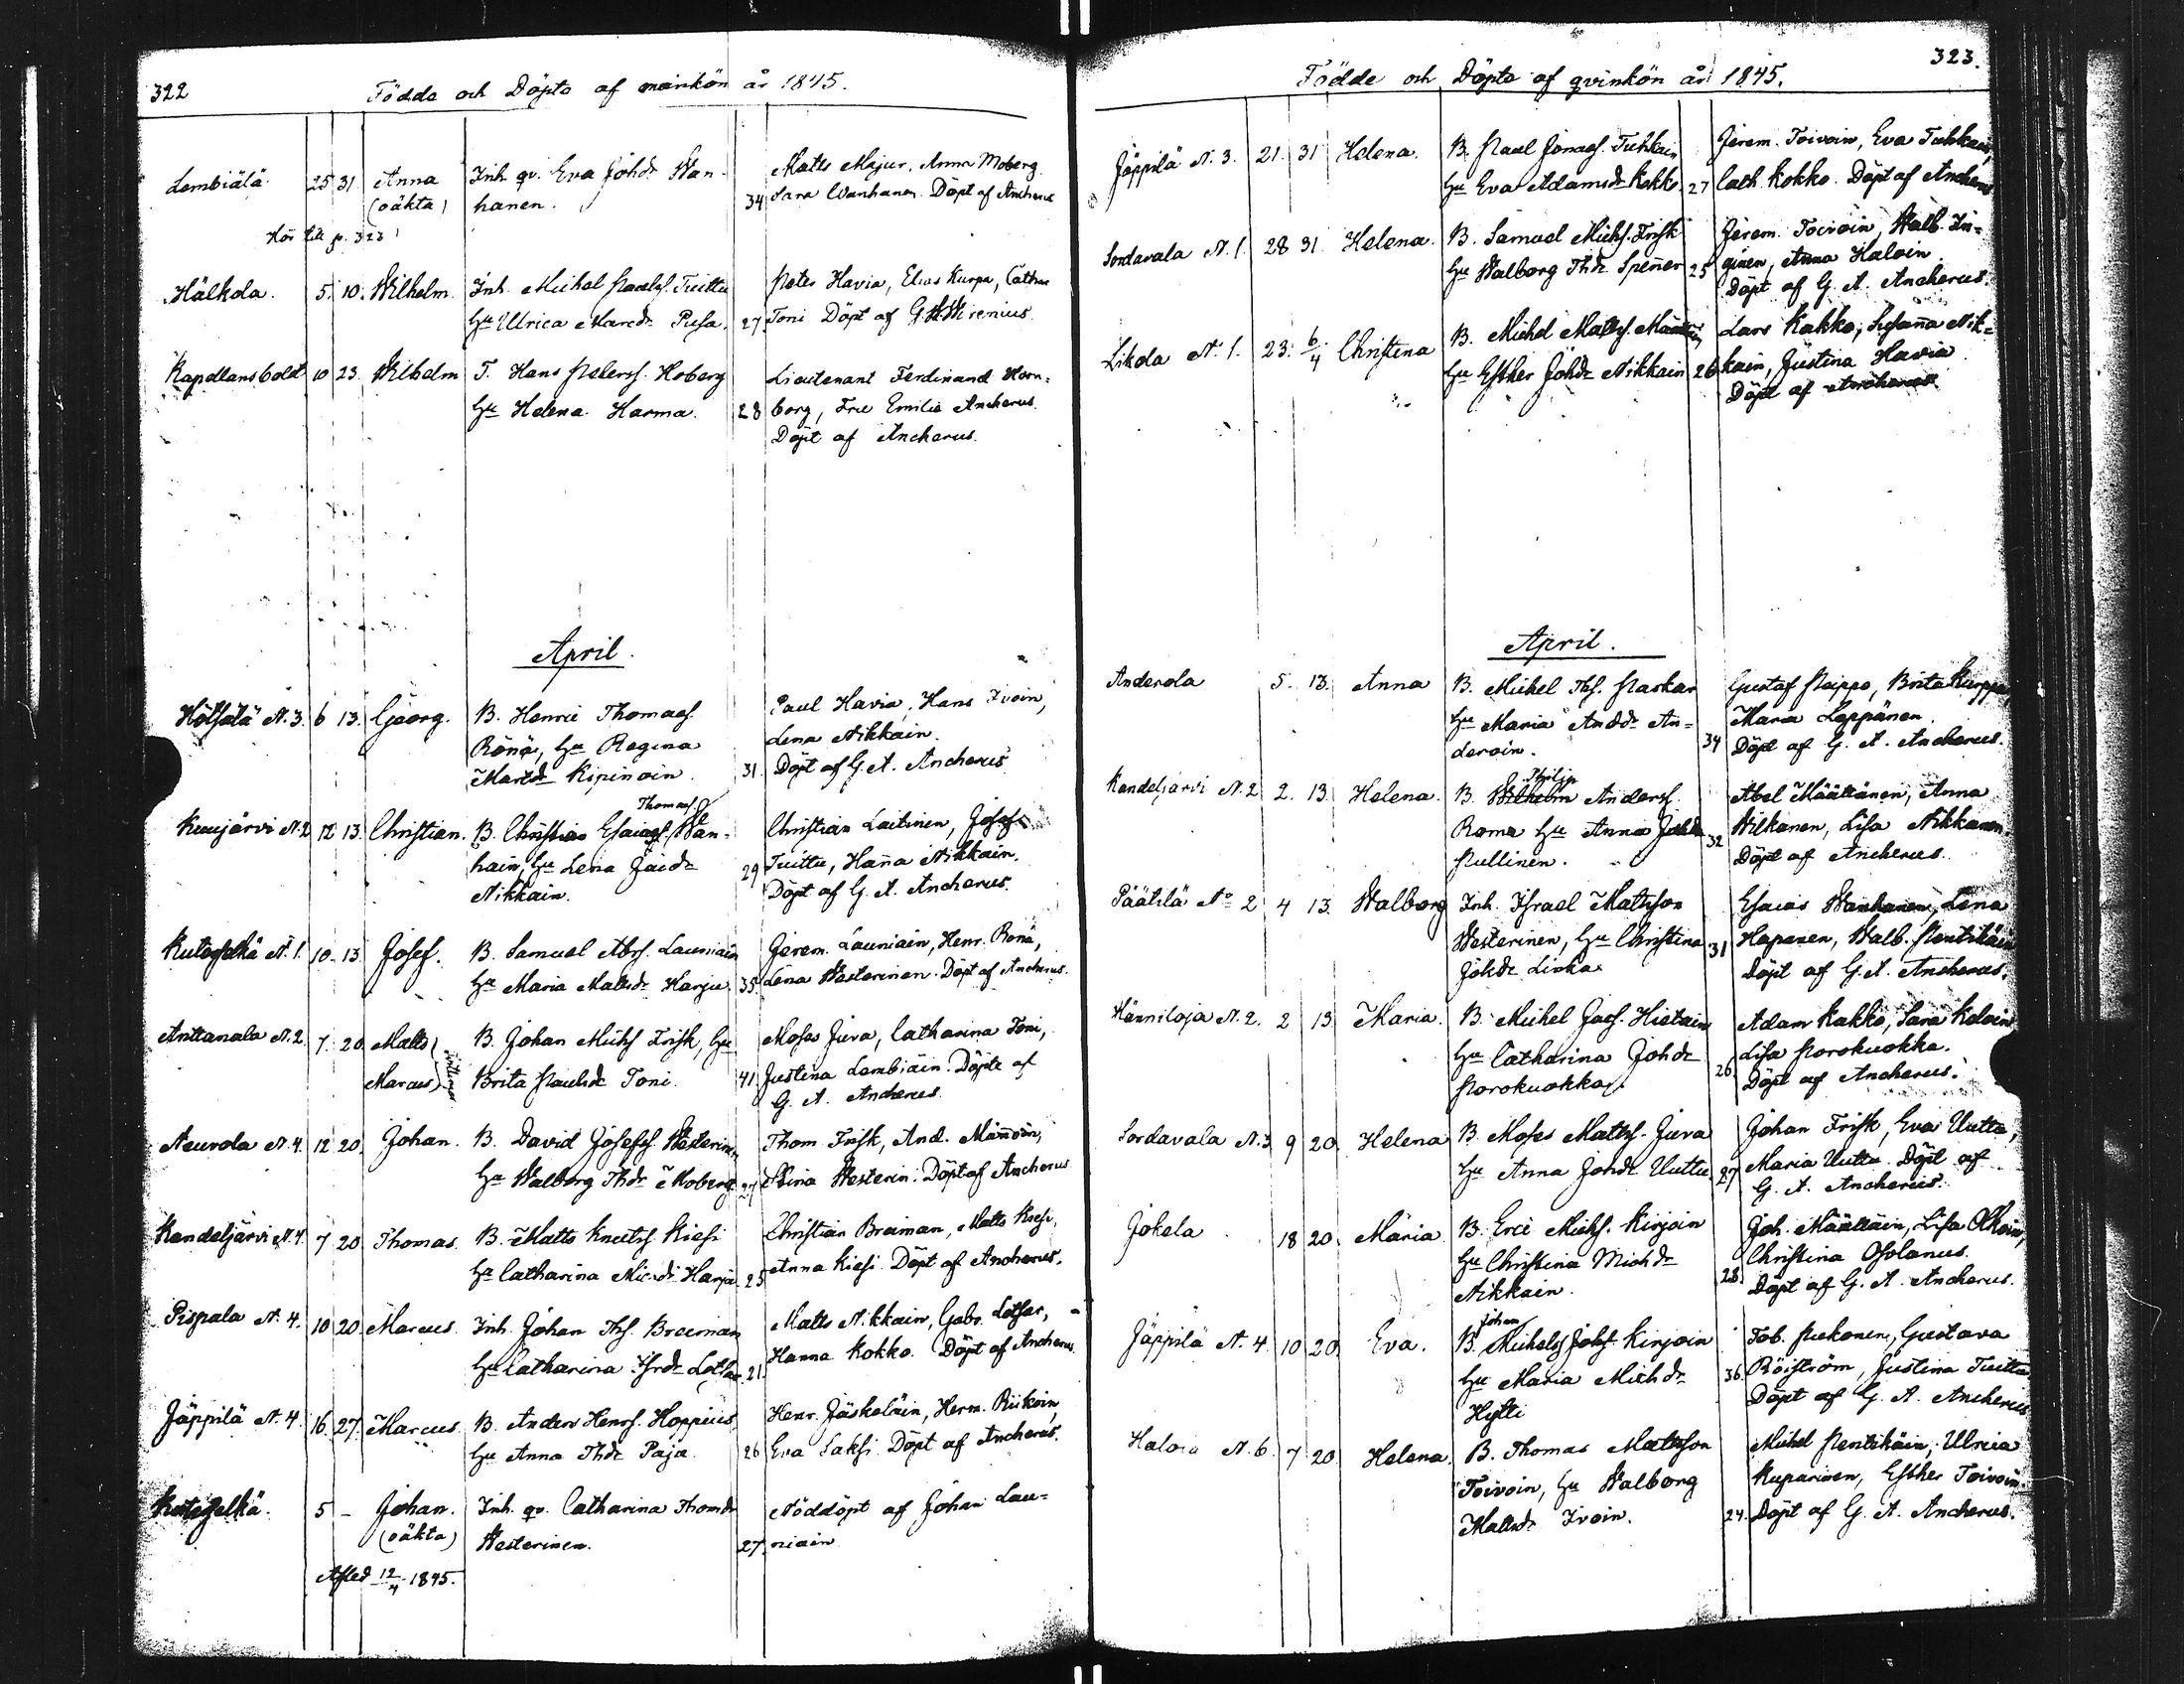 322
Födda och Döpta af mankön år 1845.
Lembiälä 25 31 Anna Inh. qv. Eva Johdr Wan- Matts Majur, Anna Moberg
(oäkta) hanen. 34 Sara Wanhanen. Döpt af Ancherus
Hör till p. 323
Hälkola. 5. 10. Wilhelm. Inh. Michel Paulss. Tuittu Peter Havia, Elias Kurpa, Cathar
Hu Ulrica Marcdr Pusa. 27 Toni Döpt af G. W. Wirenius
Kapellansbolet 10 23. Wilhelm T. Hans Peterss. Hoberg Lieutenant Ferdinand Horn=
Hu Helena Harma. 28 borg, Fru Emilie Ancherus.
Döpt af Ancherus.
April.
Hötsölä N. 3. 6 13. Georg. B. Henric Thomass. Paul Havia, Hans Ivoin,
Rönä, Hu Regina Lena Nikkain.
Martdr Kipinoin. 31 Döpt af G. A. Ancherus
Thomass.
Kuujärvi N. 2 12 13. Christian. B. Christian Esaiass. Wan- Christian Laitinen, Josef
hain, Hu Lena Jacdr 29 Tuittu, Hanna Nikkain.
Nikkain. Döpt af G. A. Ancherus.
Kuteselkä N. 1. 10. 13. Josef. B. Samuel Abrs. Launiain Jerem. Launiain, Henr. Rönä,
Hu Maria Mattsdr Harju. 35 Lena Westerinen. Döpt af Ancherus.
Anttanala N. 2. 7. 20 Matts B. Johan Michs Frisk, Hu Moses Jura, Catharina Toni,
Marcus Brita Paulsdr Toni. 41 Justina Lembiäin. Döpte af
G. A. Ancherus.
Neuvola N. 4. 12 20. Johan. B. David Josefss. Westerin, Thom Frisk, And. Männöin,
Hu Walborg Thdr Moberg 27 Stina Westerin. Döpt af Ancherus
Kandeljärvi N. 4. 7 20 Thomas. B. Matts Knutss Kiesi Christian Braiman, Matts Kiesi,
Hu Catharina Micdr Harju 25 Anna Kiesi Döpt af Ancherus.
Pispala N. 4. 10 20. Marcus. Inh. Johan Ths. Breiman Matts Nikkain, Gabr. Lotsar,
Hu Catharina Isrdr Lotsar 21. Hanna Kokko. Döpt af Ancherus
Jäppilä N. 4. 16. 27. Marcus. B. Anders Henrs. Hoppius Henr. Jäskeläin, Herm. Riikoin,
Hu Anna Thdr Paja. 26 Eva Saksi Döpt af Ancherus.
Kuteselkä. 5 – Johan. Inh. qv. Catharina Thomdr Nöddöpt af Johan Lau=
(oäkta) Westerinen. 27. niain
Afled 12/4 1845.
323.
Födde och Döpta af qvinkön år 1845.
Jäppilä N. 3. 21. 31 Helena. B. Paul Jonass. Tuhkain Jerem. Toivoin, Eva Tuhkain,
Hu Eva Adamsdr Kokko. 27 Cath. Kokko. Döpt af Ancherus
Sordavala N. 1. 28 31. Helena. B. Samuel Michs. Frisk Jerem. Toivoin, Walb. In=
Hu Walborg Thdr Spenner 25 ginen, Anna Haloin.
Döpt af G. A. Ancherus.
Likola N. 1. 23. 6/4 Christina B. Michel Mattss. Lars Kakko, Susanna Nik=
Hu Esther Johdr Nikkain 26 kain, Justina Havia
Döpt af Ancherus
April.
Anderola 5. 13. Anna B. Michel Ths. Paskar Gustaf Peippo, Brita Kurppa,
Hu Maria Anddr An= Maria Leppänen.
deroin. 34 Döpt af G. A. Ancherus.
Philip
Kandeljärvi N. 2 2. 13. Helena. B. Wilhelm Anderss. Abel Määttänen, Anna
Roma Hu Anna Johdr 32 Wilkanen, Lisa Nikkanen.
Pullinen. Döpt af Ancherus.
Päätilä No 2 4 13. Walborg Inh. Israel Mattsson Esaias Wanhanen, Lena
Westerinen, Hu Christina 31 Hapanen, Walb. Pentikäin
Johdr Linka Döpt af G. A. Ancherus.
Hänniloja N. 2. 2 13 Maria. B. Michel Jacs. Hietain Adam Kakko, Sara Koloin
Hu Catharina Johdr Lisa Porokuokka.
Porokuokka. 26 Döpt af Ancherus.
Sordavala N. 3 9 20. Helena B. Moses Mattss. Jura Johan Frisk, Eva Uutta,
Hu Anna Johdr Uuttu 27 Maria Uuttu Döpt af
G. A. Ancherus.
Jokela 18 20. Maria. B. Eric Michs. Kirjoin Joh. Määttäin, Lisa Olkoin,
Hu Christina Michdr Christina Osolanus.
Nikkain. 28 Döpt af G. A. Ancherus.
Johan
Jäppilä N. 4. 10 20. Eva. B. Michels Johs. Kirjoin Tob. Pukonen, Gustava
Hu Maria Michdr 36. Röiström, Justina Tuittu
Hytti Döpt af G. A. Ancherus
N. 6. 7 20. Helena. B. Thomas Mattsson Michel Pentikäin, Ulrica
Toivoin, Hu Walborg Kuparinen, Esther Toivoin.
Mattsdr Ivoin. 24. Döpt af G. A. Ancherus.